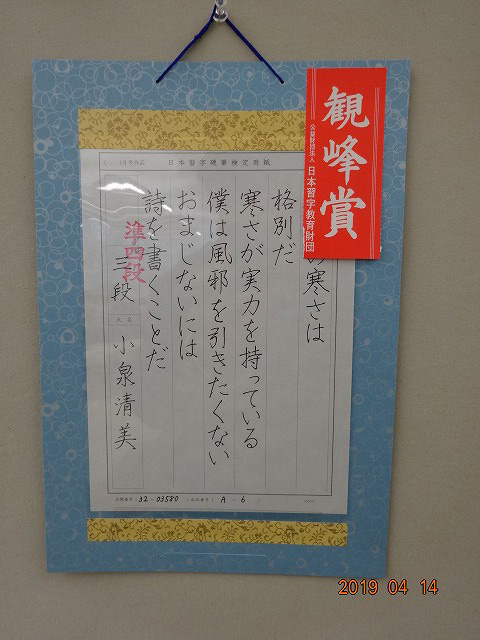 観峰賞
公益財団法人 日本習字教育財団
日本習字硬筆検定用紙
の寒さは
格別だ
寒さが実力を持っている
僕は風邪を引きたくない
おまじないには
詩を書くことだ
準四段
三段
氏名
小泉清美
32-03580
A-6
2019 04 14